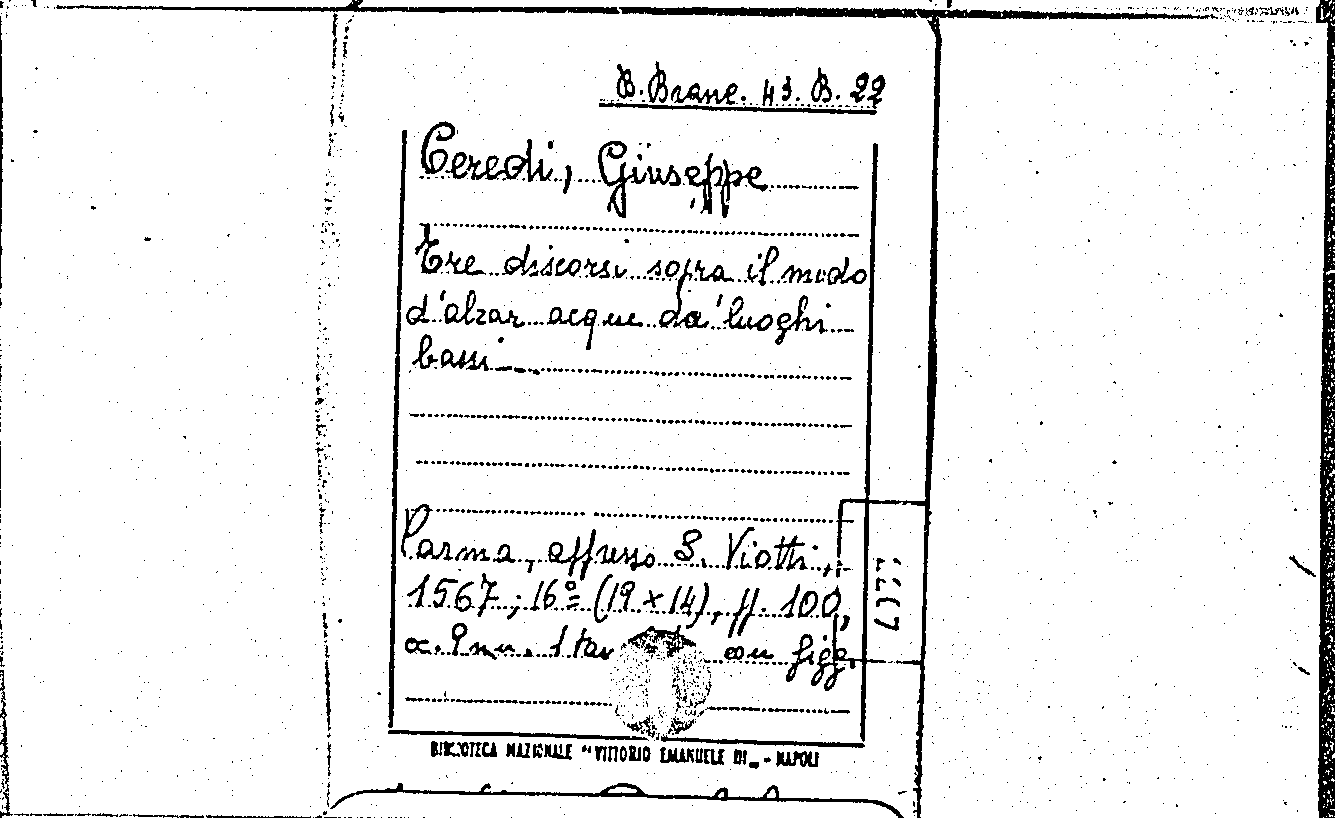 B. Branc. 43. B. 22
Ceredi, Giuseppe
Tre discorsi sopra il modo
d'alzar acque da' luoghi
bassi
Parma, appresso S. Viotti,
1567; 16º (19 x 14), ff. 100,
1 tav con figg.
BIBLIOTECA NAZIONALE "VITTORIO EMANUELE III„ - NAPOLI